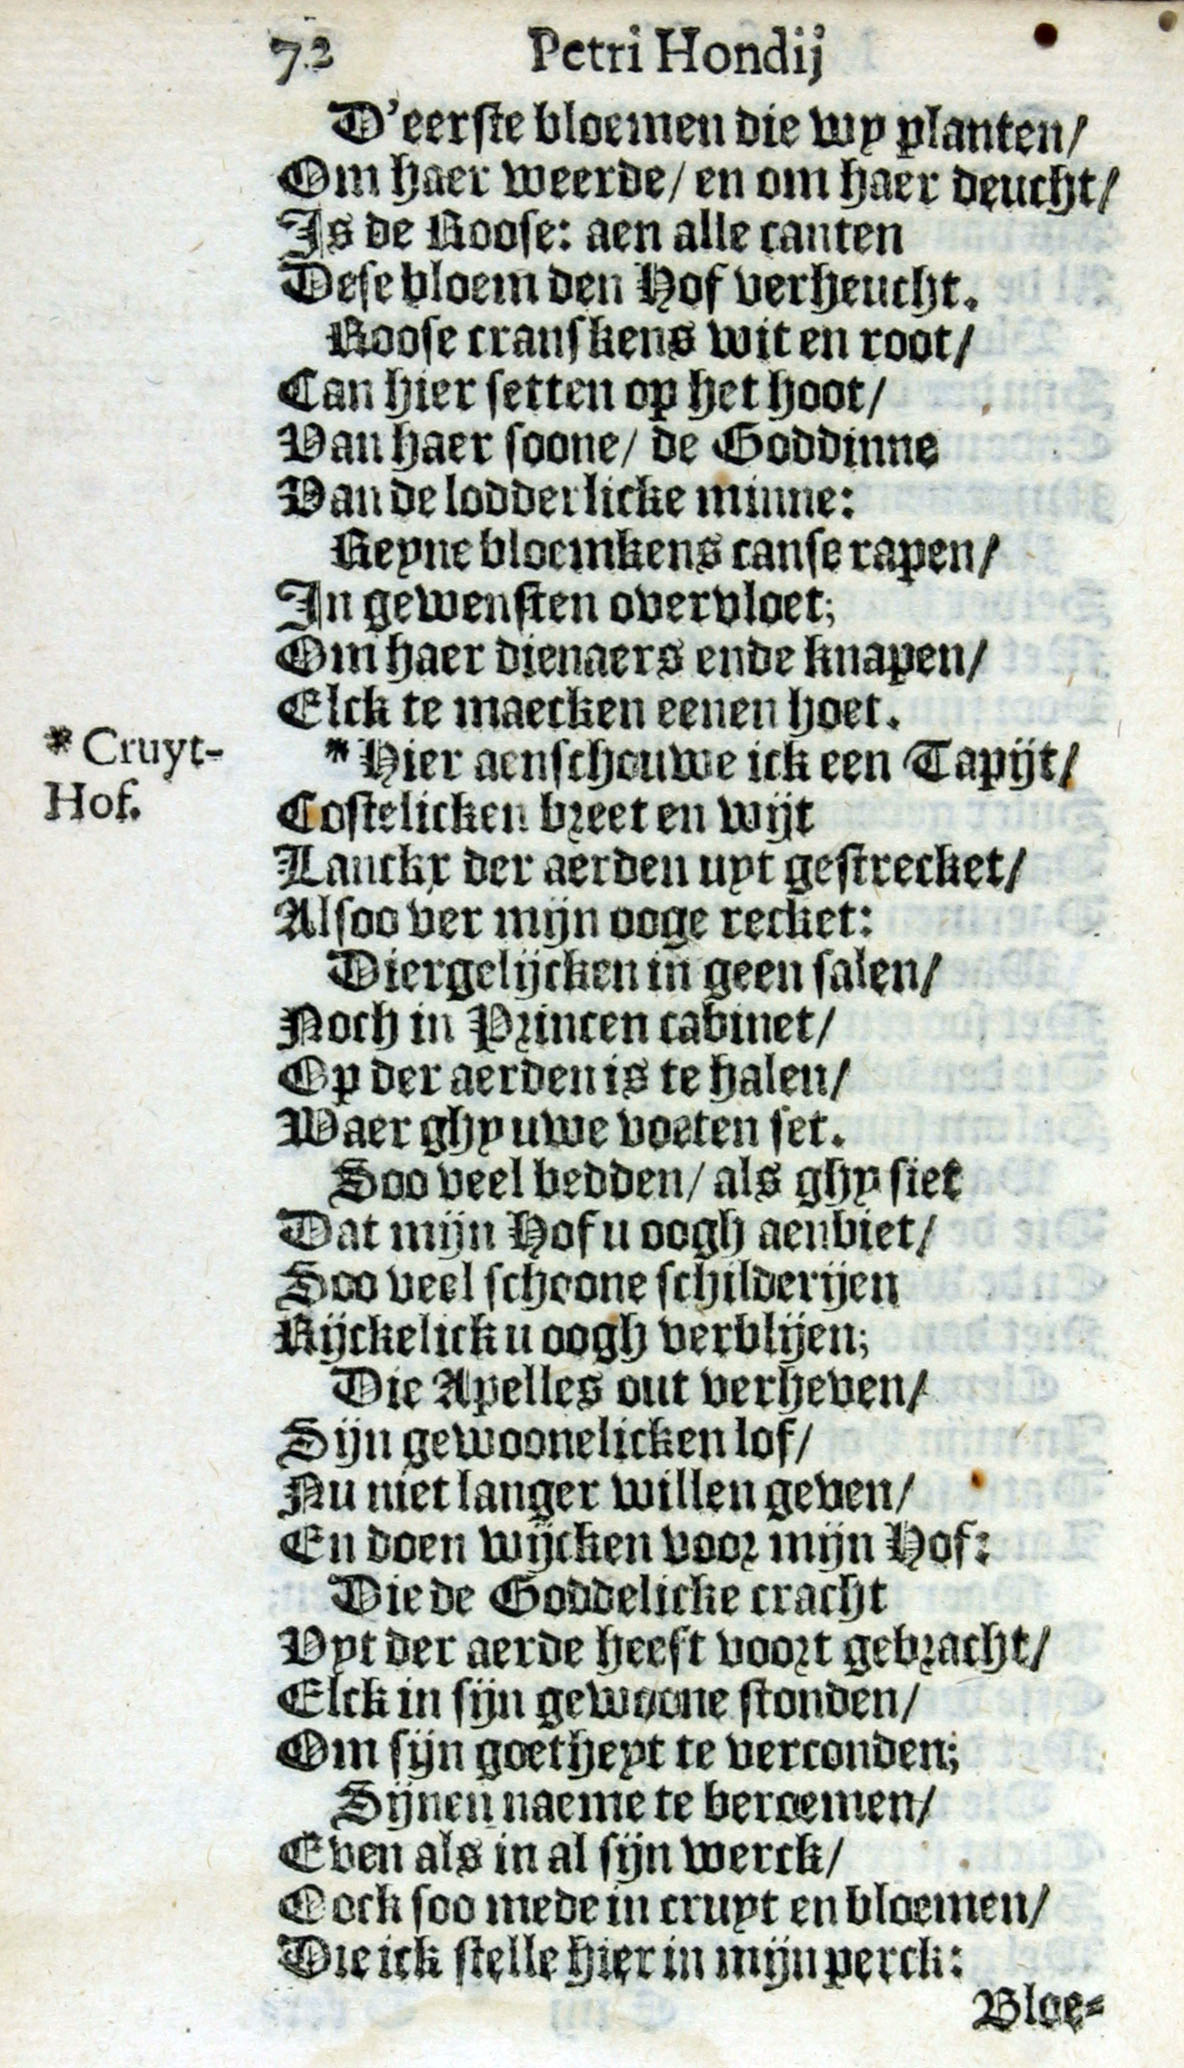 72 Petri Hondij
D'eerste bloemen die wy planten/
Om haer weerde/ en om haer deucht/
Is de Roose: aen alle canten
Dese bloem den Hof verheucht.
Roose cranskens wit en root/
Can hier setten op het hoot/
Van haer soone/ de Goddinne
Van de lodderlicke minne:
Reyne bloemkens canse rapen/
In gewensten overvloet;
Om haer dienaers ende knapen/
Elck te maecken eenen hoet.
* Cruyt-
Hof.
*Hier aenschouwe ick een Tapijt/
Costelicken breet en wijt
Lanckx der aerden uyt gestrecket/
Alsoo ver mijn ooge recket:
Diergelijcken in geen salen/
Noch in Princen cabinet/
Op der aerden is te halen/
Waer ghy uwe voeten set.
Soo veel bedden/ als ghy siet
Dat mijn Hof u oogh aenbiet/
Soo veel schoone schilderijen
Rijckelick u oogh verblijen;
Die Apelles out verheven/
Sijn gewoonelicken lof/
Nu niet langer willen geven/
En doen wijcken voor mijn Hof:
Die de Goddelicke cracht
Vyt der aerde heeft voort gebracht/
Elck in sijn gewoone stonden/
Om sijn goetheyt te verconden;
Sijnen naeme te beroemen/
Even als in al sijn werck/
Oock soo mede in cruyt en bloemen/
Die ick stelle hier in mijn perck:
Bloe-